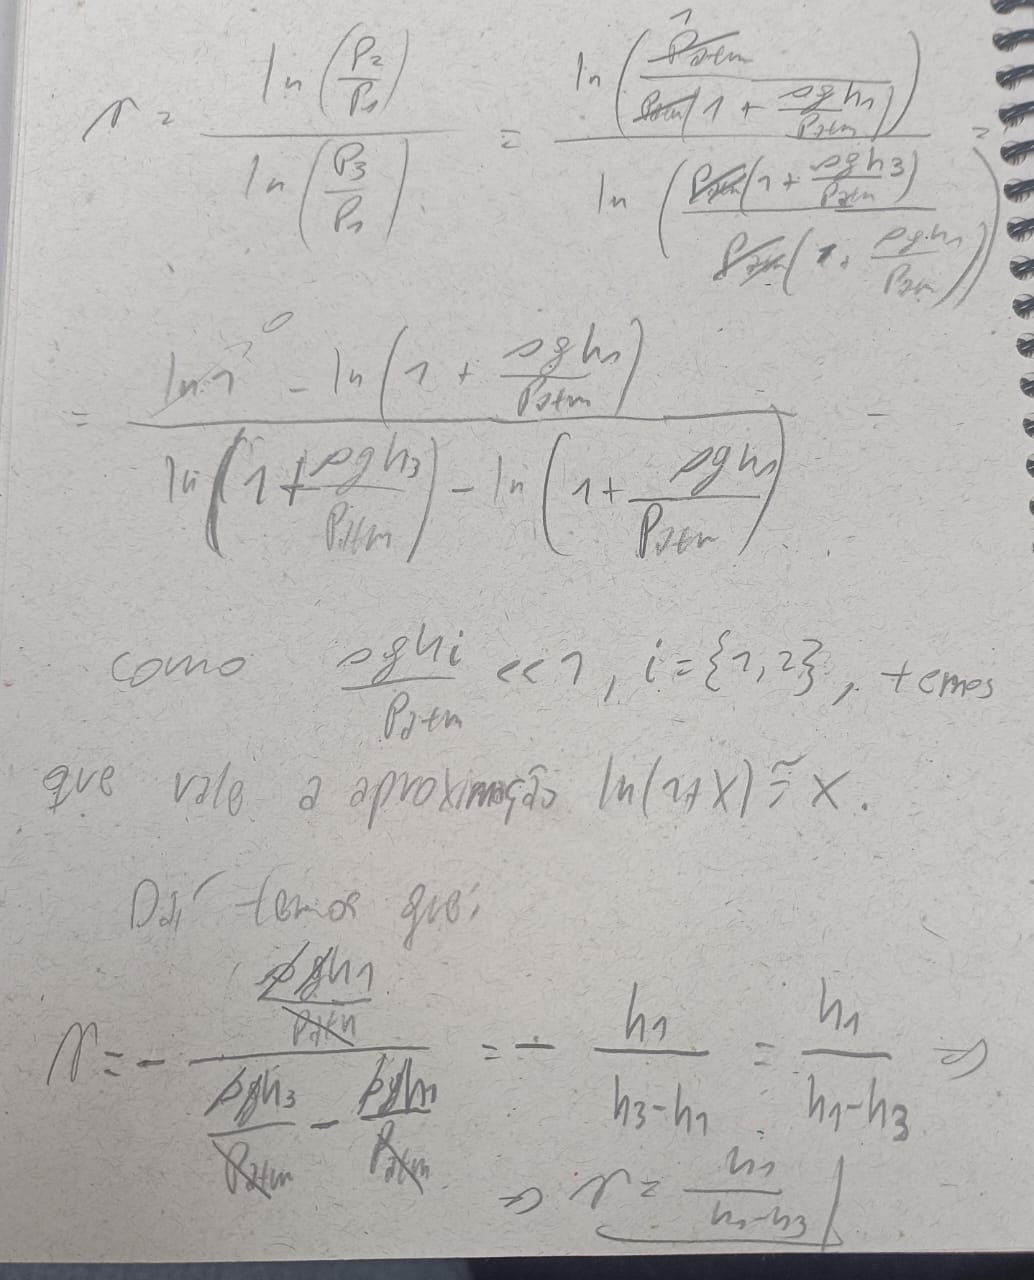 γ = ln(P₂/P₁) / ln(P₃/P₁) = ln(Patm / Patm(1 + ρgh₁/Patm)) / ln(Patm(1 + ρgh₃/Patm) / Patm(1 + ρgh₁/Patm)) =
= (ln 1 - ln(1 + ρgh₁/Patm)) / (ln(1 + ρgh₃/Patm) - ln(1 + ρgh₁/Patm)) =
como ρghi/Patm << 1, i = {1,2}, temos
que vale a aproximação ln(1+x) ≅ x.
Daí temos que:
γ = - (ρgh₁/Patm) / (ρgh₃/Patm - ρgh₁/Patm) = - h₁/(h₃-h₁) = h₁/(h₁-h₃) ⇔
⇔ γ = h₁/(h₁-h₃)